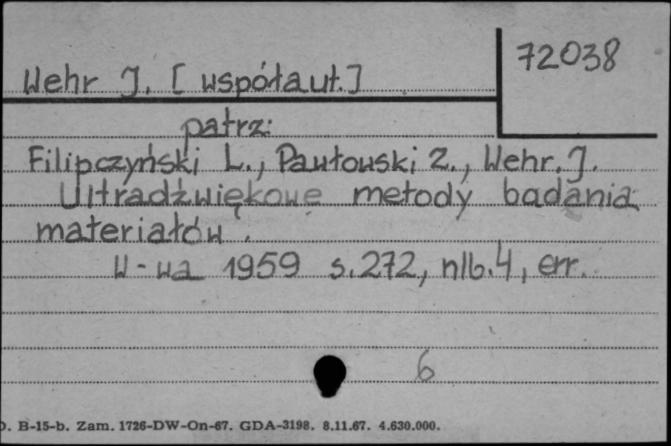 72038
Wehr J. [współaut.]
patrz:
Filipczyński L., Pawłowski Z., Wehr, J.
Ultradźwiękowe metody badania
materiałów.
W-wa 1959 s. 272, nlb. 4, err.
6
D. B-15-b. Zam. 1726-DW-On-67. GDA-3198. 8.11.67. 4.630.000.